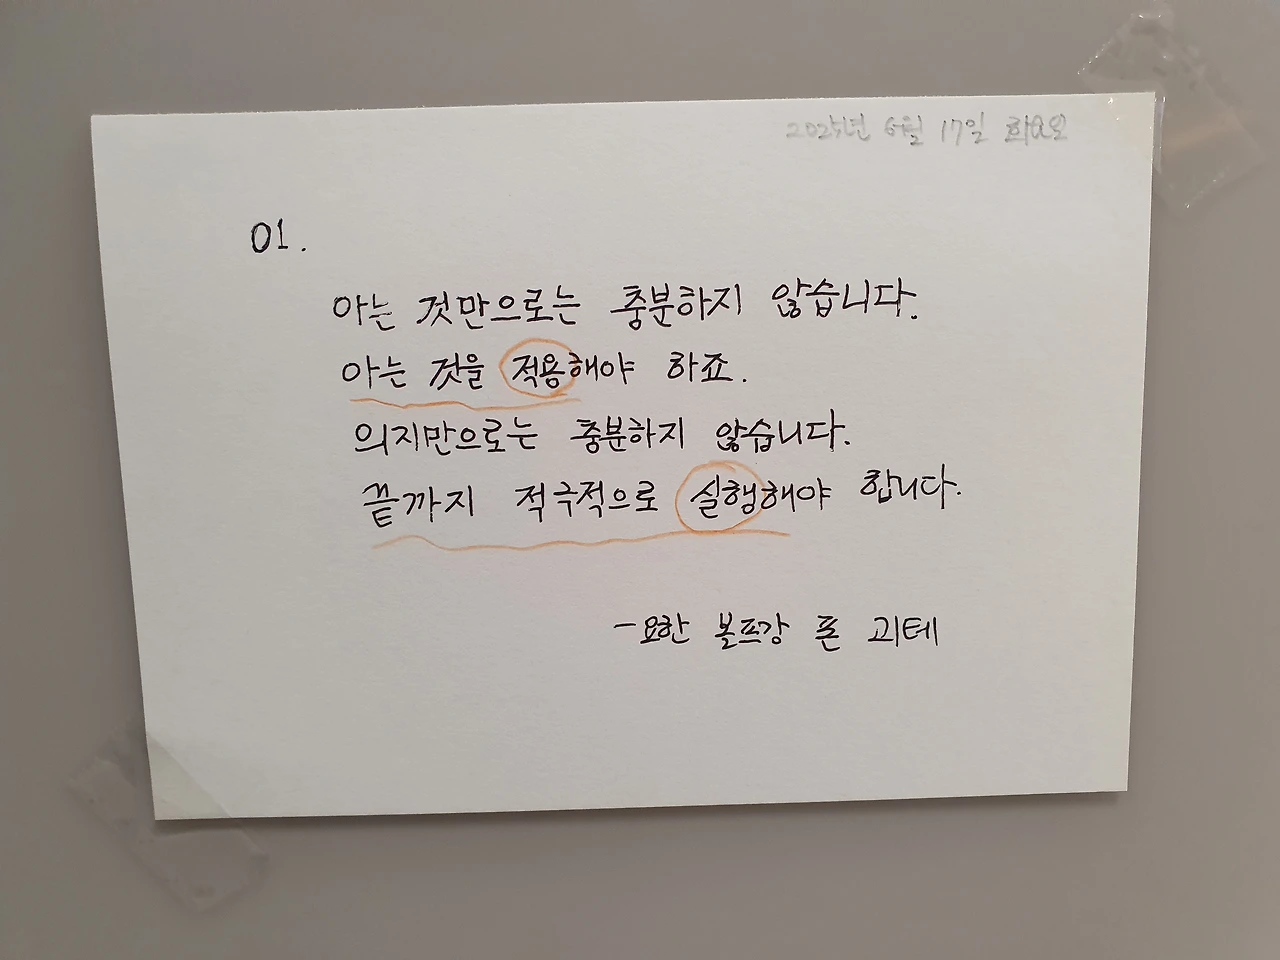 2025년 6월 17일 화요일
01.
아는 것만으로는 충분하지 않습니다.
아는 것을 적용해야 하죠.
의지만으로는 충분하지 않습니다.
끝까지 적극적으로 실행해야 합니다.
-요한 볼프강 폰 괴테